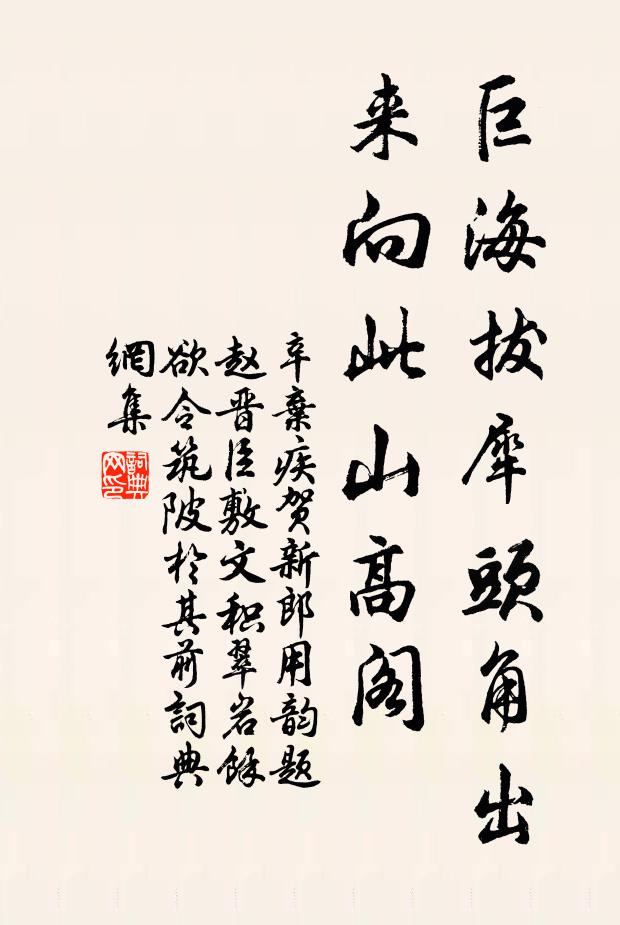 巨海拔犀頭角出
来向此山高阁
辛棄疾贺新郎用韵题
赵晋臣敷文积翠岩餘
欲令筑陂於其前詞典
網集
詞典网印